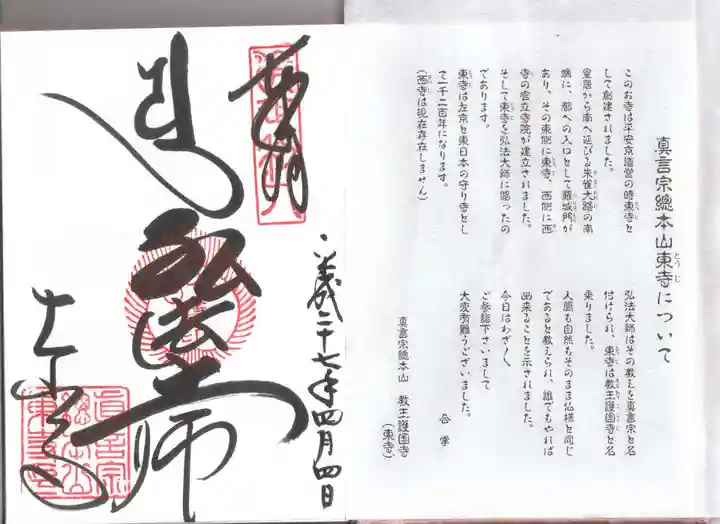 真言宗總本山東寺について
とうじ
このお寺は平安京造営の時東寺と
して創建されました。
皇居から南へ延びる朱雀大路の南
端に、都への入口として羅城門が
あり、その東側に東寺、西側に西
寺の官立寺院が建立されました。
そして東寺を弘法大師に賜ったの
であります。
東寺は左京と東日本の守り寺とし
て一千二百年になります。
(西寺は現在存在しません)
弘法大師はその教えを真言宗と名
付けられ、東寺は教王護国寺と名
乗りました。
人間も自然もそのまま仏様と同じ
であると教えられ、誰でもやれば
出来ることを示されました。
今日はわざ〱
ご参詣下さいまして
大変有難うございました。
合掌
真言宗總本山 教王護国寺
(東寺)
奉拝
平成二十七年四月四日
弘法大師
東寺
真言宗
總本山
東寺